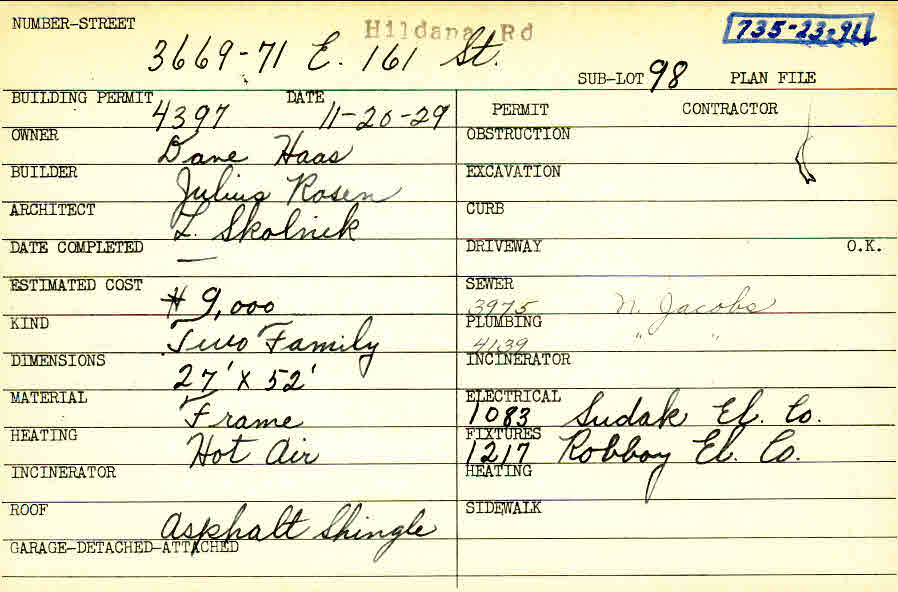 NUMBER-STREET
Hildana Rd
735-23-91
3669-71 E. 161 St.
SUB-LOT 98 PLAN FILE
BUILDING PERMIT 4397 DATE 11-20-29
PERMIT CONTRACTOR
OWNER Dave Haas
OBSTRUCTION
BUILDER Julius Rosen
EXCAVATION
ARCHITECT L. Skolnik
CURB
DATE COMPLETED —
DRIVEWAY O.K.
ESTIMATED COST $9,000
SEWER 3975 N. Jacobs
KIND Two Family
PLUMBING 4139 " "
DIMENSIONS 27' X 52'
INCINERATOR
MATERIAL Frame
ELECTRICAL 1083 Sudak El. Co.
HEATING Hot Air
FIXTURES 1217 Robboy El. Co.
INCINERATOR
HEATING
ROOF Asphalt Shingle
SIDEWALK
GARAGE-DETACHED-ATTACHED